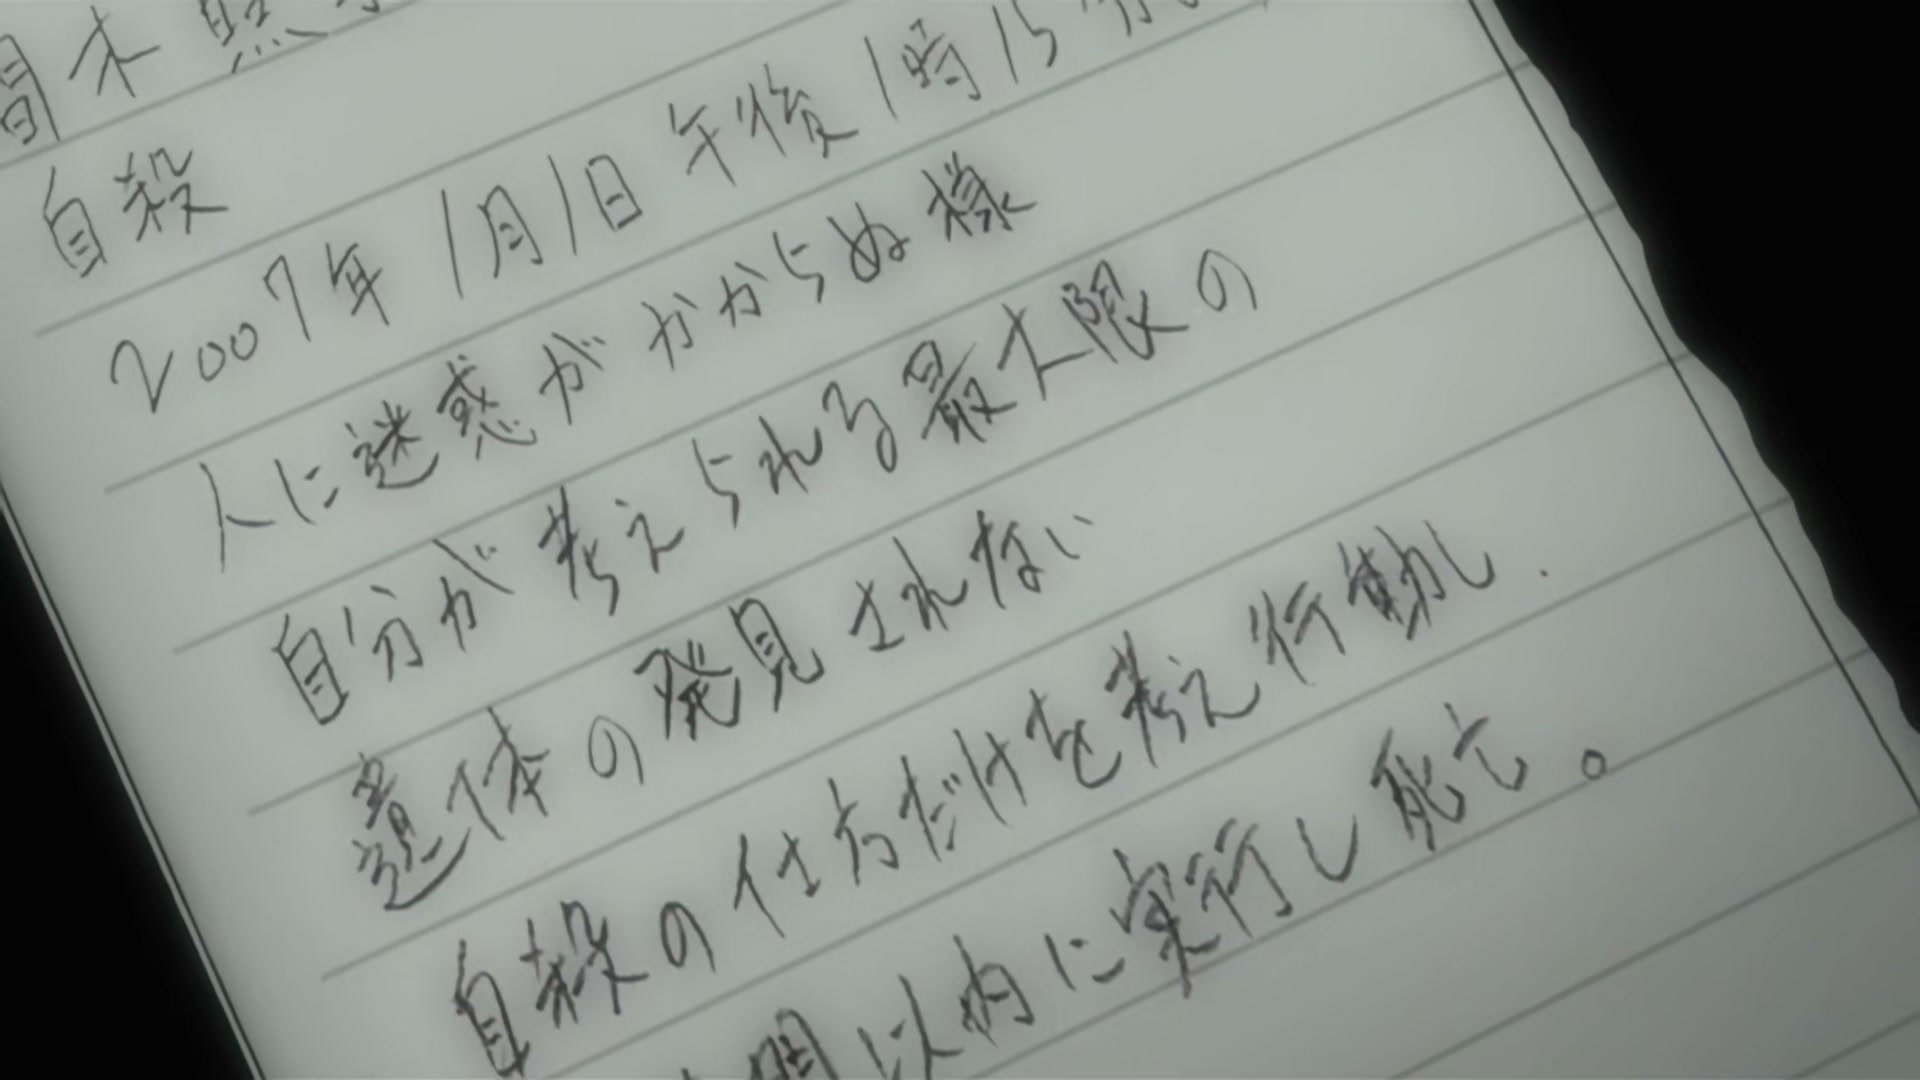 間木照
自殺
2007年1月1日午後1時15分
人に迷惑がかからぬ様
自分が考えられる最大限の
遺体の発見されない
自殺の仕方だけを考え行動し.
間以内に実行し死亡。